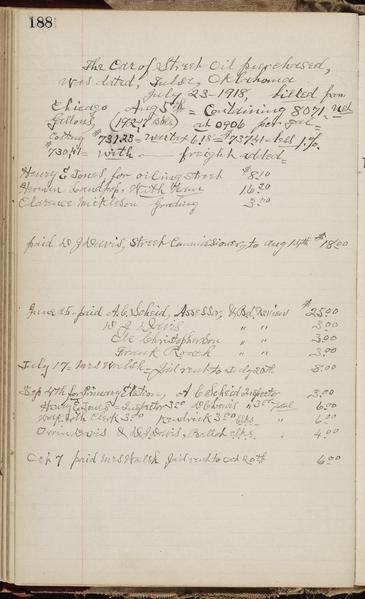 188
The Car of Street Oil purchased,
was dated, Tulsa, Oklahoma
July 23-1918, billed from
Chicago Aug 5th = Containing 8071 Net
Gallons, at 0906 per gal =
Costing $731.23 = 6.18 = $737.41 = less 1%
$730.41 = with freight added =
Henry E Jones, for oiling street $5.10
Herman 16.20
Clarence McKisson Grading 3.00
paid W J Davis, Street Commissioner, to Aug 14th $18.00
June 25 - paid A.C. Scheid, Assessor, & Bd. Review $25.00
W J Davis " " 3.00
Christopherson " " 3.00
Frank Roach " " 3.00
July 17 Mrs Walsh - Jail rent to July 20th 8.00
Sep 4th for Primary Election, A C Scheid Inspector 3.00
Henry E Jones = Inspector 3.00 W 3.00 6.00
Clerk 3.00 Kendrick 3.00 " 6.00
Orrin Davis & W J Davis, Ballot " 4.00
Oct 7 paid Mrs Walsh Jail rent to Oct 20th 6.00